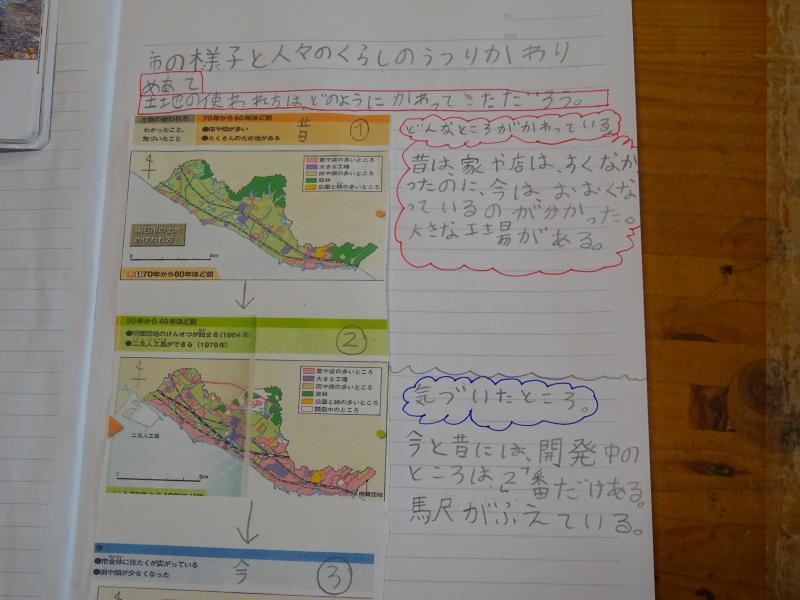 市の様子と人々のくらしのうつりかわり
めあて
土地の使われ方は、どのようにかわってきただろう。
土地の使われ方
わかったこと、
気づいたこと
70年から60年ほど前
●田や畑が多い
●たくさんのため池がある
昔
①
家や店の多いところ
大きな工場
田や畑の多いところ
森林
公園と緑の多いところ
明石市の土地
の使われ方
0
5km
1 70年から60年ほど前
50年から40年ほど前
●明舞団地のけんせつが始まる(1964年)
●二見人工島ができる(1979年)
②
家や店の多いところ
大きな工場
田や畑の多いところ
森林
公園と緑の多いところ
開発中のところ
二見人工島
0
5km
明舞団地
今
●市全体に住たくが広がっている
●田や畑が少なくなった
今
③
どんなところがかわっている。
昔は、家や店は、すくなか
ったのに、今は、おおくな
っているのが分かった。
大きな工場がある。
気づいたところ。
今と昔には、開発中の
ところは、2番だけある。
駅がふえている。